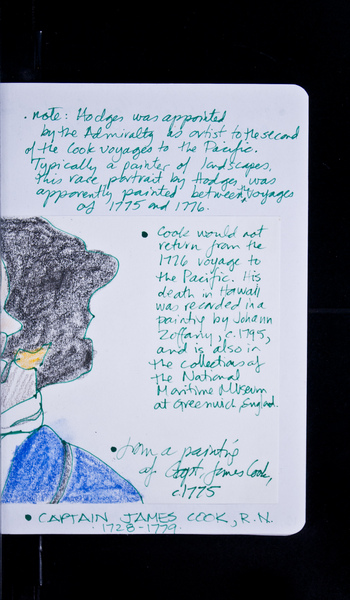 • note: Hodges was appointed
by the Admiralty as artist to the second
of the Cook voyages to the Pacific.
Typically a painter of landscapes,
this rare portrait by Hodges was
apparently painted between voyages
of 1775 and 1776.
• Cook would not
return from the
1776 voyage to
the Pacific. His
death in Hawaii
was recorded in a
painting by Johann
Zoffany, c.1795,
and is also in
the collections of
the National
Maritime Museum
at Greenwich, England.
• from a painting
of Capt. James Cook,
c1775
• CAPTAIN JAMES COOK, R.N.
1728-1779